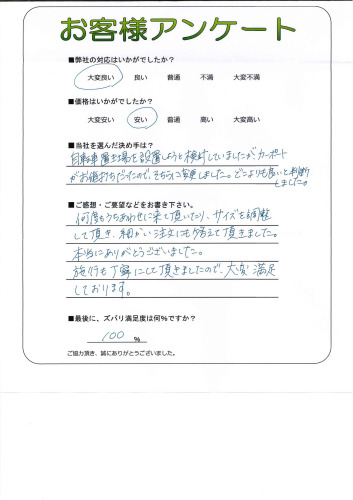 お客様アンケート
■弊社の対応はいかがでしたか?
大変良い 良い 普通 不満 大変不満
■価格はいかがでしたか?
大変安い 安い 普通 高い 大変高い
■当社を選んだ決め手は?
自転車置き場を設置しようと検討していましたがカーポート
がお値打ちだったので、そちらに変更しました。どこよりも良いと判断
しました。
■ご感想・ご要望などをお書き下さい。
何度もうちあわせに来て頂いたり、サイズを調整
して頂き、細かい注文にも答えて頂きました。
本当にありがとうございました。
施行も丁寧にして頂きましたので、大変満足
しております。
■最後に、ズバリ満足度は何%ですか?
100 %
ご協力頂き、誠にありがとうございました。